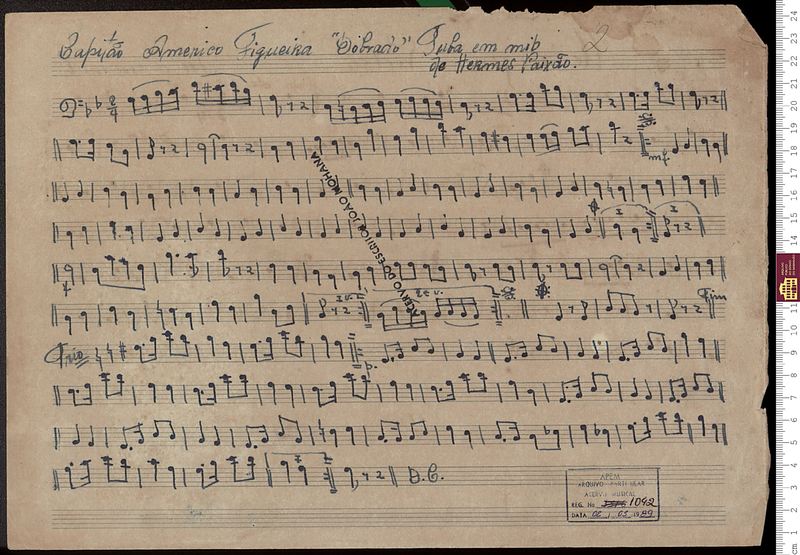 Capitão Americo Figueira "Dobrado" Tuba em mib 2
de Hermes Paixão.
mf
ACERVO DO ESCRITOR JOÃO MOHANA
f
1ª v.
2ª v.
Fim
Trio
p.
D.C.
APEM
ARQUIVO PARTICULAR
ACERVO MUSICAL
REG. No 1042
DATA
cm 1 2 3 4 5 6 7 8 9 10 11 13 14 15 16 17 18 19 20 21 22 23 24